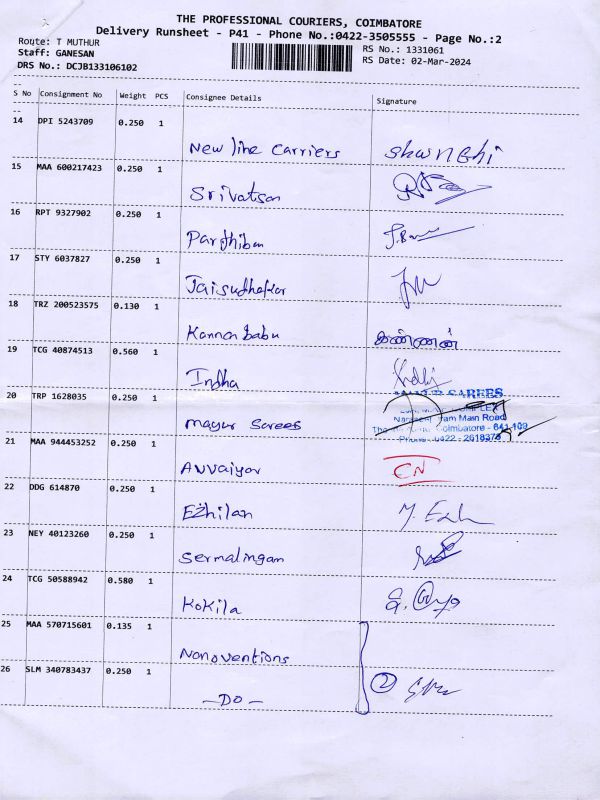 THE PROFESSIONAL COURIERS, COIMBATORE
Delivery Runsheet - P41 - Phone No.:0422-3505555 - Page No.:2
Route: T MUTHUR
RS No.: 1331061
Staff: GANESAN
RS Date: 02-Mar-2024
DRS No.: DCJB133106102
S No Consignment No Weight PCS Consignee Details Signature
14 DPI 5243709 0.250 1
New line Carriers
15 MAA 600217423 0.250 1
Srivatsan
16 RPT 9327902 0.250 1
Parthiban
17 STY 6037827 0.250 1
Jaisudhakar
18 TRZ 200523575 0.130 1
Kannan babu கண்ணன்
19 TCG 40874513 0.560 1
Indha
SAREES
20 TRP 1628035 0.250 1
Main Road
Mayur Sarees
Coimbatore - 641 109
Phone: 0422 - 2618375
21 MAA 944453252 0.250 1
Avvaiyar CN
22 DDG 614870 0.250 1
Ezhilan
23 NEY 40123260 0.250 1
Sermalingam
24 TCG 50588942 0.580 1
Kokila
25 MAA 570715601 0.135 1
Nonoventions
26 SLM 340783437 0.250 1
2
-DO-